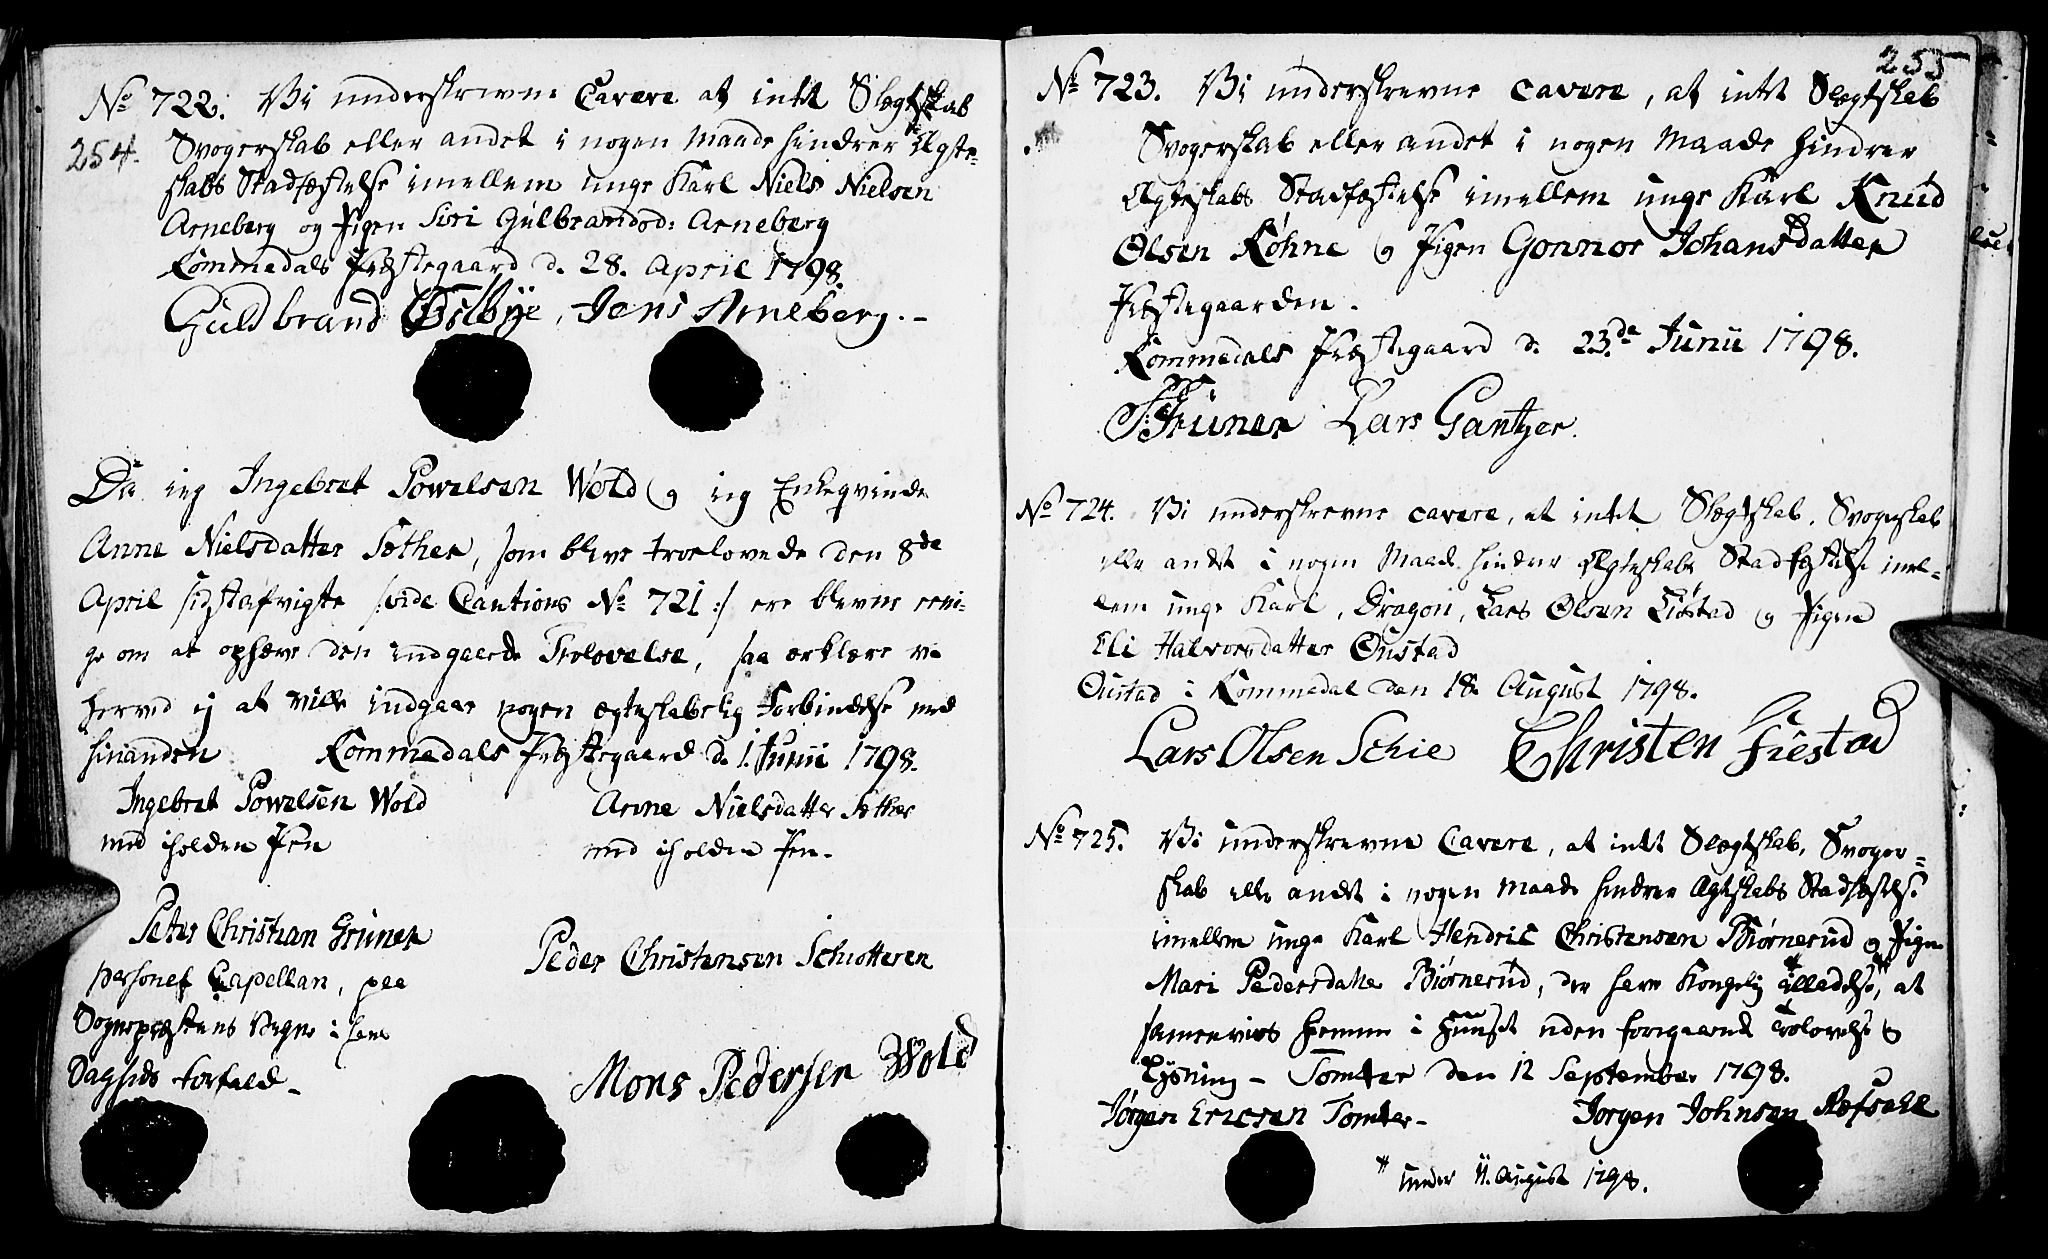 254.
No 722. Vi underskrevne Cavere at intet Slegtskab
Svogerskab eller andet i nogen Maade hindrer Ægte-
skabs Stadfæstelse imellem unge Karl Niels Nielsen
Arneberg og Pigen Siri Gulbrandsd: Arneberg
Rommedals Præstegaard d. 28. April 1798.
Guldbrand Østbye, Jens Arneberg.-
Da ieg Ingebret Powelsen Wold og ieg Enkeqvinde
Anne Nielsdatter Sæther, som bleve troelovede den 8de
April sidstafvigte /:vide Cautions No 721:/ ere blevne eeni-
ge om at ophæve den indgaaede Trolovelse, saa erklære vi
herved ej at ville indgaae nogen ægteskabelig Forbindelse med
hinanden Rommedals Præstegaard d. 1. Junii 1798.
Ingebret Powelsen Wold Anne Nielsdatter Sæther
med iholden Pen med iholden Pen.
Peter Christian Grüner
personel Capellan, paa
Sognepræstens Vegne i hans
Dagsids Forfald-
Peder Christensen Schiotteren
Mons Pedersen Wold
255
No 723. Vi underskrevne cavere, at intet Slegtskab
Svogerskab eller andet i nogen Maade hindrer
Ægteskabs Stadfæstelse imellem unge Karl Knud
Olsen Køhne og Pigen Gonnor Johansdatter
Præstegaarden.
Rommedals Præstegaard d. 23.de Junii 1798.
Grüner Lars Gantzer.
No 724. Vi underskrevne cavere, at intet Slegtskab, Svogerskab
eller andet i nogen Maade hindrer Ægteskabs Stadfæstelse imel-
lem unge Karl, Dragon, Lars Olsen og Pigen
Eli Halvorsdatter Oustad
Oustad i Rommedal den 18. August 1798.
Lars Olsen Schie Christen Fiestad
No 725. Vi underskrevne Cavere, at intet Slegtskab, Svoger-
skab eller andet i nogen Maade hindrer Ægtskabs Stadfæstelse
imellem unge Karl Hendric Christensen Biørnerud og Pigen
Mari Pedersdatter Biørnerud, der have Kongelig Tilladelse,# at
sammenvies hiemme i Huuset uden foregaaende Trolovelse og
Lysning - Tomter den 12 September 1798.
Jørgen Ericsen Tomter- Jørgen Johnsen Refsahl
# under 11. August 1798.